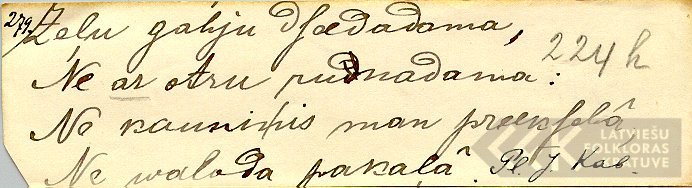 279. Zeļu gahju dsedadama,
224 h
Ne ar otru runadama:
No kaunixis man preekschâ,
No waloda pakaļâ. Pl. J. Kab.
LATVIEŠU
FOLKLORAS
KRĀTUVE